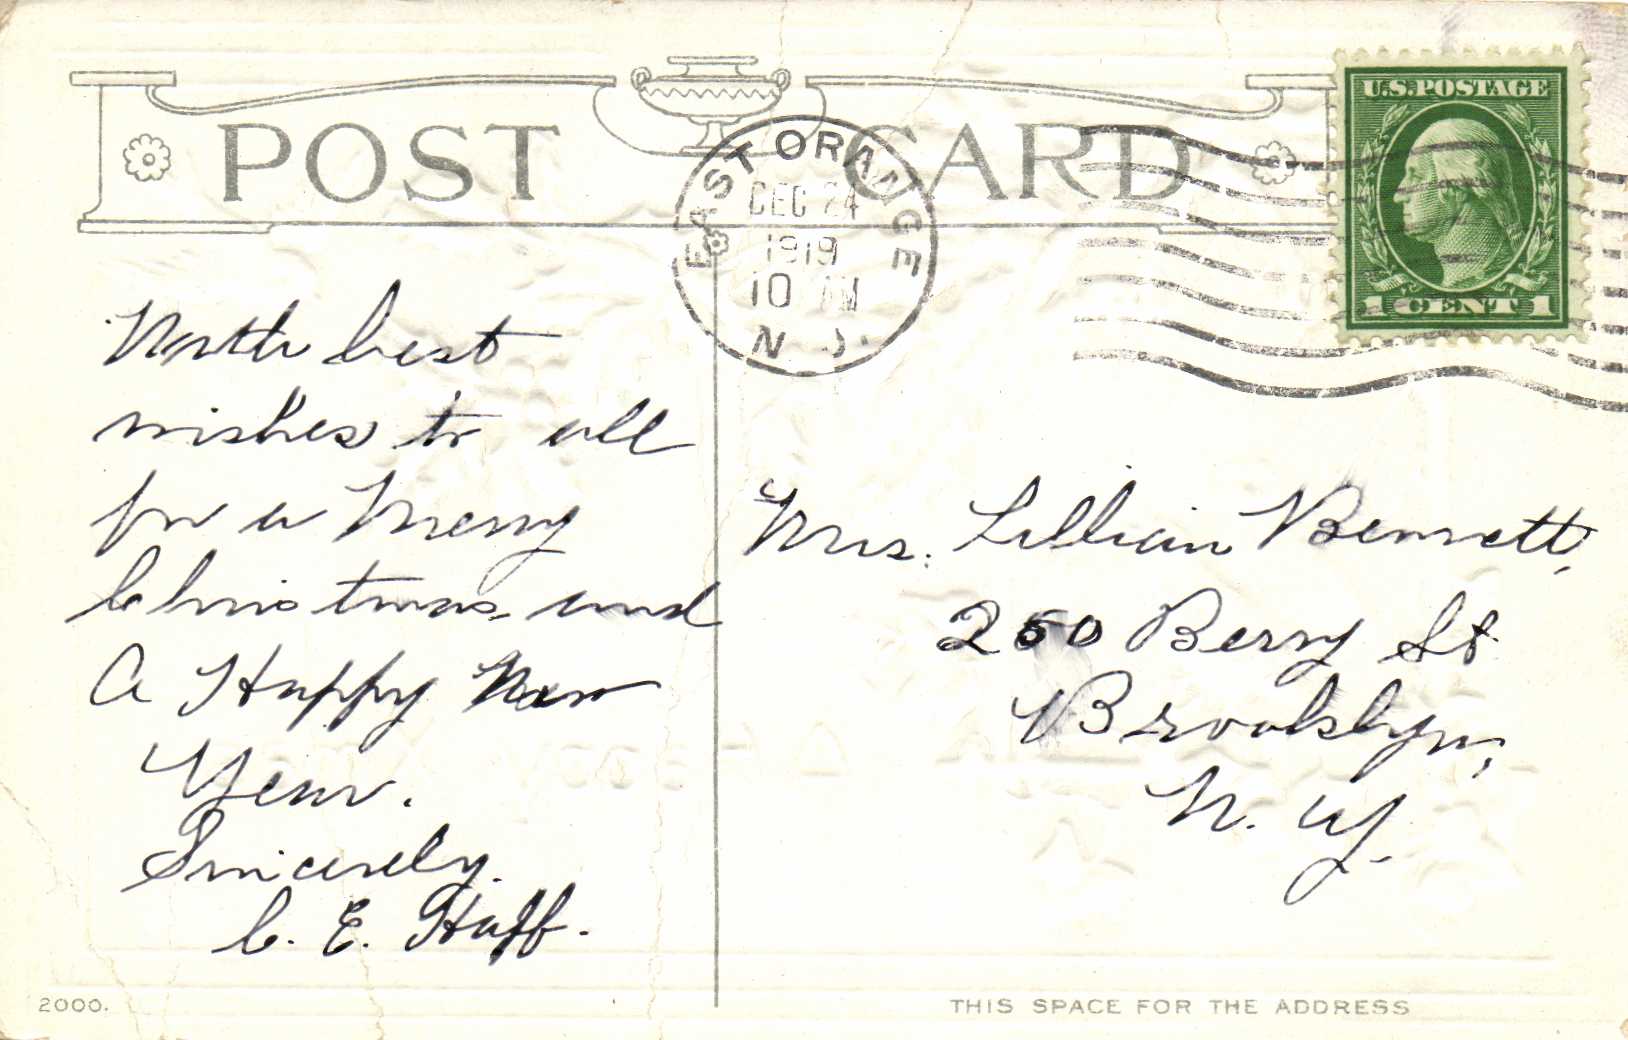 POST CARD
EAST ORANGE
DEC 24
1919
10 AM
N. J.
U.S. POSTAGE
1 CENT 1
With best
wishes to all
for a Merry
Christmas and
A Happy New
Year.
Sincerely.
C. E. Huff.
Mrs. Lillian Bennett,
250 Berry St
Brooklyn,
N. Y.
2000.
THIS SPACE FOR THE ADDRESS